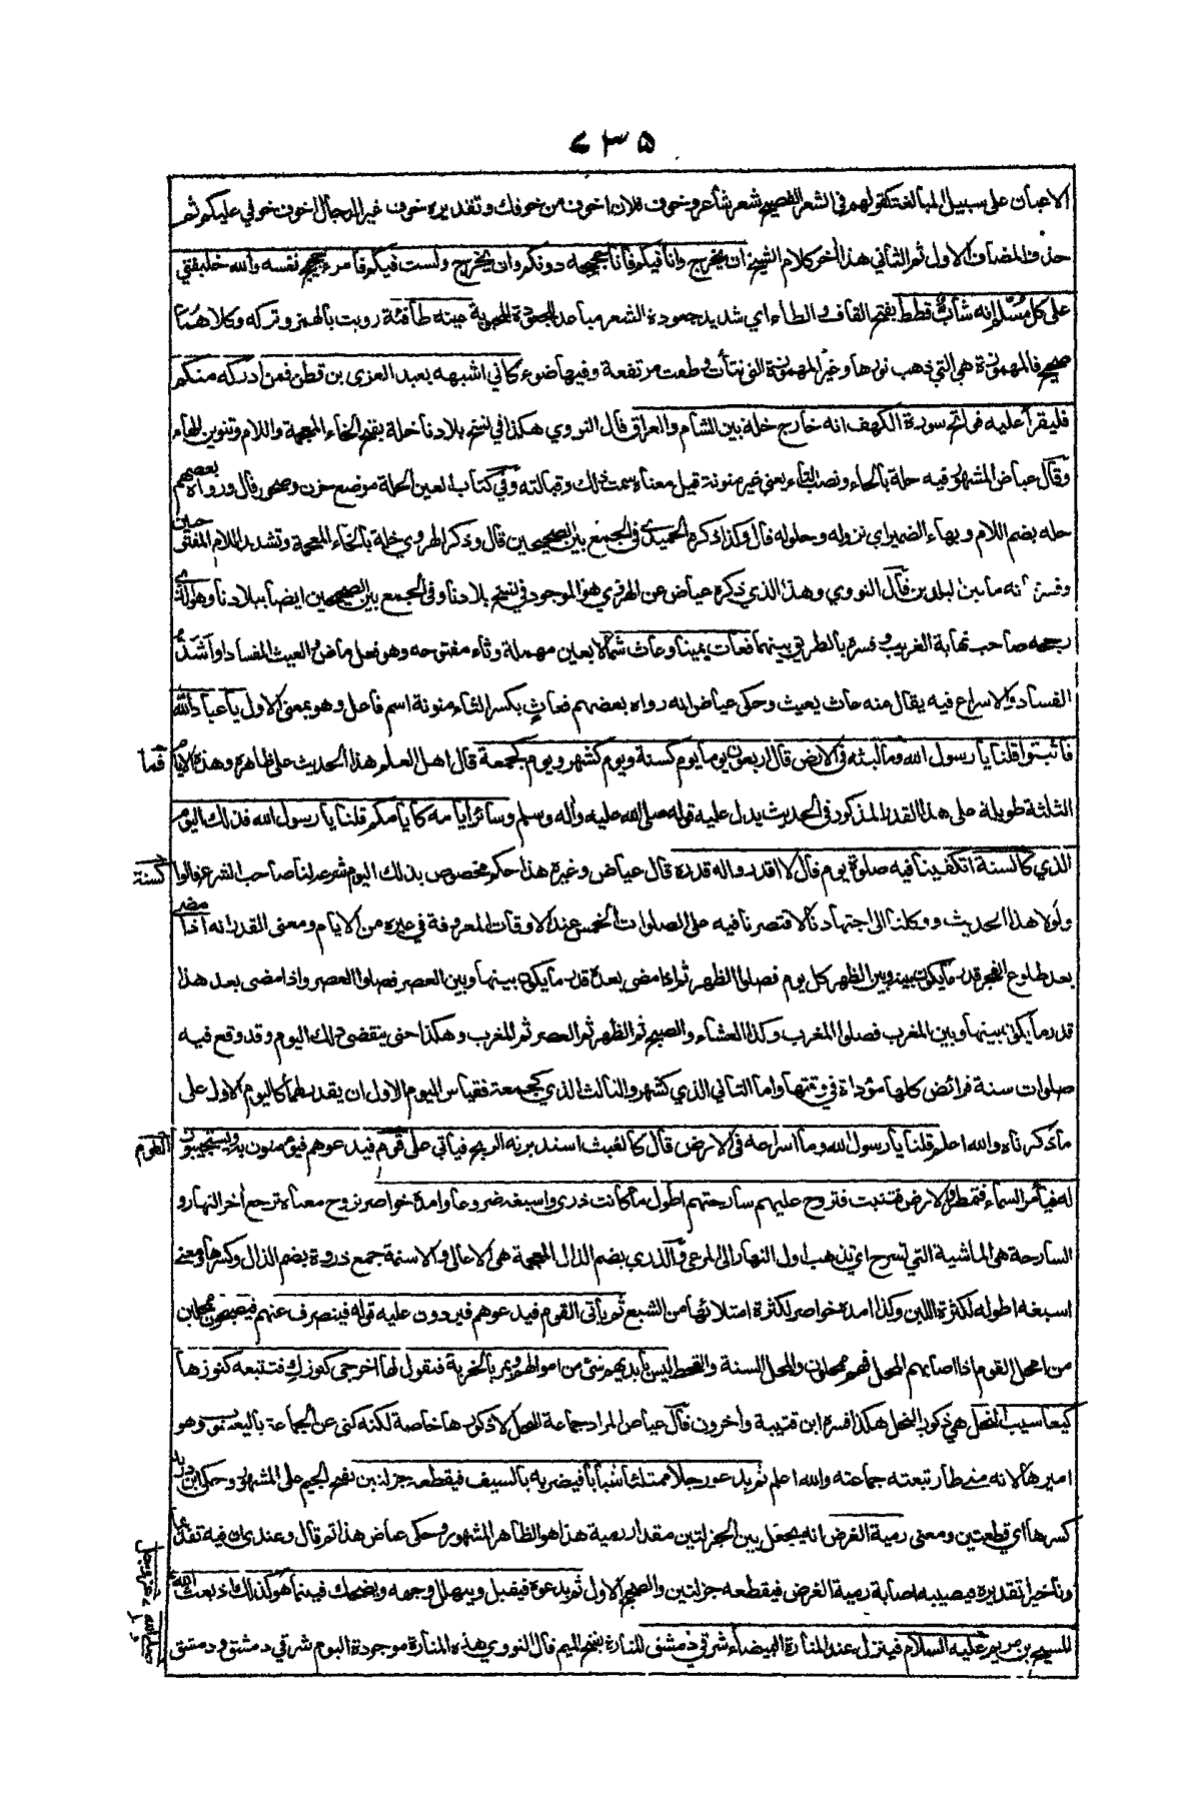 ٧٣٥
الاعيان على سبيل المبالغة كقولهم في الشعر الفصيح شعر شاعر وخوف فلان اخوف من خوفك وتقديره خوف غير الدجال اخوف خوفي عليكم ثم
حذف المضاف الاول ثم الثاني هذا آخر كلام الشيخ ان يخرج وانا فيكم فانا حجيجه دونكم وان يخرج ولست فيكم فامرء حجيج نفسه والله خليفتي
على كل مسلم انه شاب قطط بفتح القاف والطاء اي شديد جعودة الشعر مباعد الجعودة المحبوبة عينه طافئة رويت بالهمز وتركه وكلاهما
صحيح فالمهموزة هي التي ذهب نورها وغير المهموزة التي نتأت وطفت مرتفعة وفيها ضوء كاني اشبهه بعبد العزى بن قطن فمن ادركه منكم
فليقرأ عليه فواتح سورة الكهف انه خارج خلة بين الشام والعراق قال النووي هكذا في نسخ بلادنا خلة بفتح الخاء المعجمة واللام وتنوين الهاء
وقال عياض المشهور فيه حلة بالحاء ونصب التاء يعني غير منونة قيل معناه سمت ذلك وقبالته وفي كتاب العين الحلة موضع حزن وصخور قال ورواه بعضهم
حله بضم اللام وبهاء الضمير اي نزوله وحلوله قال وكذا ذكره الحميدي في الجمع بين الصحيحين قال وذكر الهروي خلة بالخاء المعجمة وتشديد اللام المفتوحتين
وفسره انه ما بين البلدين قال النووي وهذا الذي ذكره عياض عن الهروي هو الموجود في نسخ بلادنا وفي الجمع بين الصحيحين ايضا ببلادنا وهو الذي
رجحه صاحب نهاية الغريب وفسره بالطريق بينهما فعاث يمينا وعاث شمالا بعين مهملة وثاء مفتوحه وهو فعل ماض والعيث الفساد او اشد
الفساد والاسراع فيه يقال منه عاث يعيث وحكى عياض انه رواه بعضهم فعاث بكسر الثاء منونة اسم فاعل وهو بمعنى الاول يا عباد الله
فاثبتوا قلنا يا رسول الله وما لبثه في الارض قال اربعون يوما يوم كسنة ويوم كشهر ويوم كجمعة قال اهل العلم هذا الحديث على ظاهره وهذه الايام
الثلثة طويلة على هذا القدر المذكور في الحديث يدل عليه قوله صلى الله عليه وآله وسلم وسائر ايامه كايامكم قلنا يا رسول الله فذلك اليوم
الذي كالسنة اتكفينا فيه صلوة يوم قال لا اقدروا له قدره قال عياض وغيره هذا حكم مخصوص بذلك اليوم شرعه لنا صاحب الشرع قالوا كسنة
ولولا هذا الحديث ووكلنا الى اجتهادنا لاقتصرنا فيه على الصلوات الخمس عند الاوقات المعروفة في غيره من الايام ومعنى القدر انه اذا مضى
بعد طلوع الفجر قدر ما يكون بينه وبين الظهر كل يوم فصلوا الظهر ثم اذا مضى بعده قدر ما يكون بينها وبين العصر فصلوا العصر واذا مضى بعد هذا
قدر ما يكون بينها وبين المغرب فصلوا المغرب وكذا العشاء والصبح ثم الظهر ثم العصر ثم المغرب وهكذا حتى ينقضي ذلك اليوم وقد وقع فيه
صلوات سنة فرائض كلها مؤداة في وقتها واما الثاني الذي كشهر والثالث الذي كجمعة فقياس اليوم الاول ان يقدر لهما كاليوم الاول على
ما ذكرناه والله اعلم قلنا يا رسول الله وما اسراعه في الارض قال كالغيث استدبرته الريح فيأتي على قوم فيدعوهم فيؤمنون به ويستجيبون
له فيأمر السماء فتمطر والارض فتنبت فتروح عليهم سارحتهم اطول ما كانت ذرى واسبغه ضروعا وامده خواصر تروح معناه ترجع آخر النهار و
السارحة هي الماشية التي تسرح اي تذهب اول النهار الى المرعى والذرى بضم الذال المعجمة هي الاعالي والاسنمة جمع ذروة بضم الذال وكسرها ومعنى
اسبغه اطوله لكثرة اللبن وكذا امده خواصر لكثرة امتلائها من الشبع ثم يأتي القوم فيدعوهم فيردون عليه قوله فينصرف عنهم فيصبحون ممحلين
من امحل القوم اذا اصابهم المحل فهم ممحلون والمحل السنة والقحط ليس بايديهم شئ من اموالهم ويمر بالخربة فيقول لها اخرجي كنوزك فتتبعه كنوزها
كيعاسيب النحل هي ذكور النحل هكذا فسره ابن قتيبة وآخرون قال عياض المراد جماعة النحل لا ذكورها خاصة لكنه كنى عن الجماعة باليعسوب وهو
اميرها لانه متى طار تبعته جماعته والله اعلم ثم يدعو رجلا ممتلئا شبابا فيضربه بالسيف فيقطعه جزلتين بفتح الجيم على المشهور وحكى ابن دريد
كسرها اي قطعتين ومعنى رمية الغرض انه يجعل بين الجزلتين مقدار رمية هذا هو الظاهر المشهور وحكى عياض هذا ثم قال وعندي ان فيه تقديما
وتأخيرا تقديره فيصيبه اصابة رمية الغرض فيقطعه جزلتين والصحيح الاول ثم يدعوه فيقبل ويتهلل وجهه ويضحك فبينما هو كذلك اذ بعث الله
المسيح بن مريم عليه السلام فينزل عند المنارة البيضاء شرقي دمشق المنارة بفتح الميم قال النووي هذه المنارة موجودة اليوم شرقي دمشق ودمشق